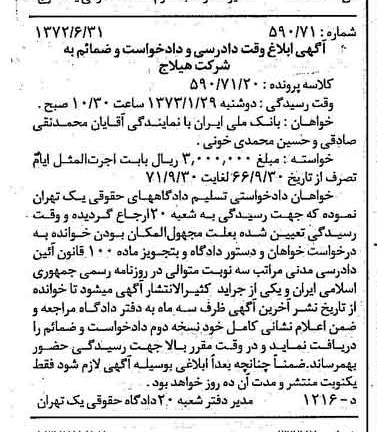 شماره: ۵۹۰/۷۱ ۱۳۷۲/۶/۳۱
آگهی ابلاغ وقت دادرسی و دادخواست و ضمائم به
شرکت هیلاج
کلاسه پرونده : ۵۹۰/۷۱/۲۰
وقت رسیدگی : دوشنبه ۱۳۷۳/۱/۲۹ ساعت ۱۰/۳۰ صبح .
خواهان : بانک ملی ایران با نمایندگی آقایان محمدنقی
صادقی و حسین محمدی خونی .
خواسته : مبلغ ۳,۰۰۰,۰۰۰ ریال بابت اجرت‌المثل ایام
تصرف از تاریخ ۶۶/۹/۳۰ لغایت ۷۱/۹/۳۰
خواهان دادخواستی تسلیم دادگاههای حقوقی یک تهران
نموده که جهت رسیدگی به شعبه ۲۰ ارجاع گردیده و وقت
رسیدگی تعیین شده بعلت مجهول‌المکان بودن خوانده به
درخواست خواهان و دستور دادگاه و بتجویز ماده ۱۰۰ قانون آئین
دادرسی مدنی مراتب سه نوبت متوالی در روزنامه رسمی جمهوری
اسلامی ایران و یکی از جراید کثیرالانتشار آگهی میشود تا خوانده
از تاریخ نشر آخرین آگهی ظرف سه ماه به دفتر دادگاه مراجعه و
ضمن اعلام نشانی کامل خود نسخه دوم دادخواست و ضمائم را
دریافت نماید و در وقت مقرر بالا جهت رسیدگی حضور
بهمرساند. ضمناً چنانچه بعداً ابلاغی بوسیله آگهی لازم شود فقط
یکنوبت منتشر و مدت آن ده روز خواهد بود .
د - ۱۲۱۶ مدیر دفتر شعبه ۲۰ دادگاه حقوقی یک تهران